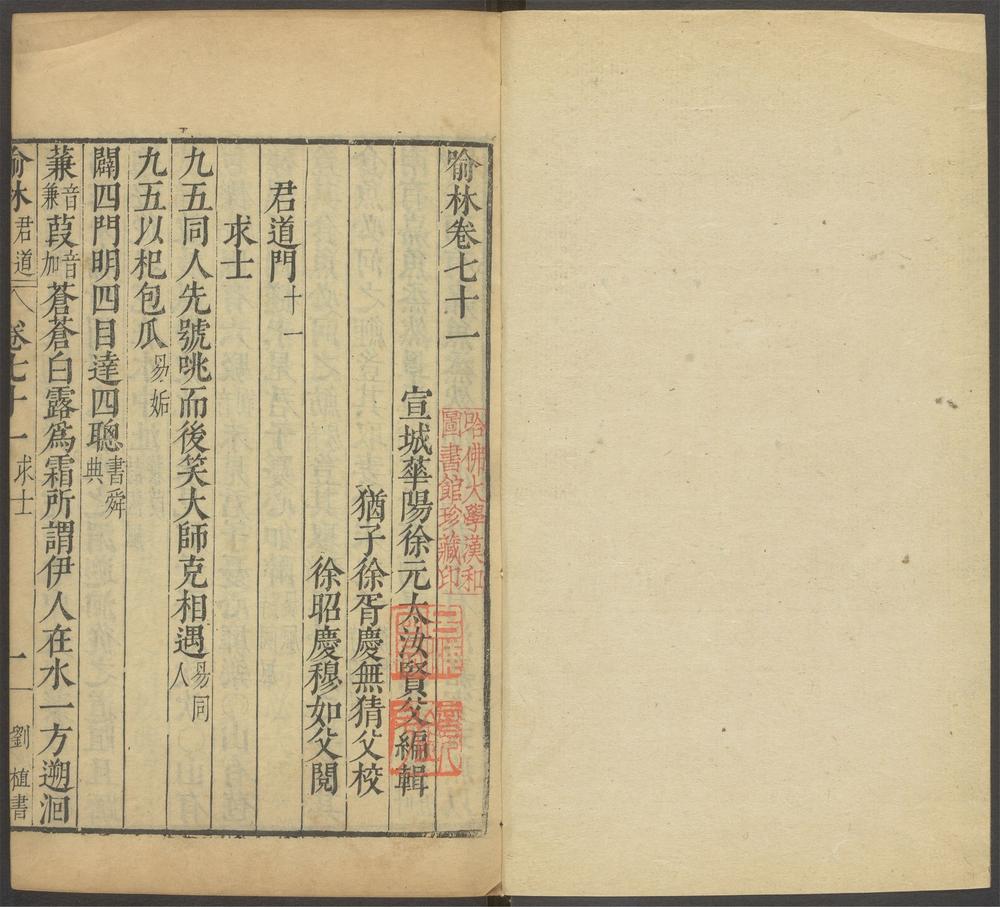 喻林卷七十一
宣城華陽徐元太汝賢父編輯
猶子徐胥慶無猜父校
徐昭慶穆如父閱
君道門十一
求士
九五同人先號咷而後笑大師克相遇易同人
九五以杞包瓜易姤
闢四門明四目達四聰書舜典
蒹音兼葭音加蒼蒼白露爲霜所謂伊人在水一方遡洄
喻林君道 卷七十一 求士 一 劉植書
哈佛大學漢和
圖書館珍藏印